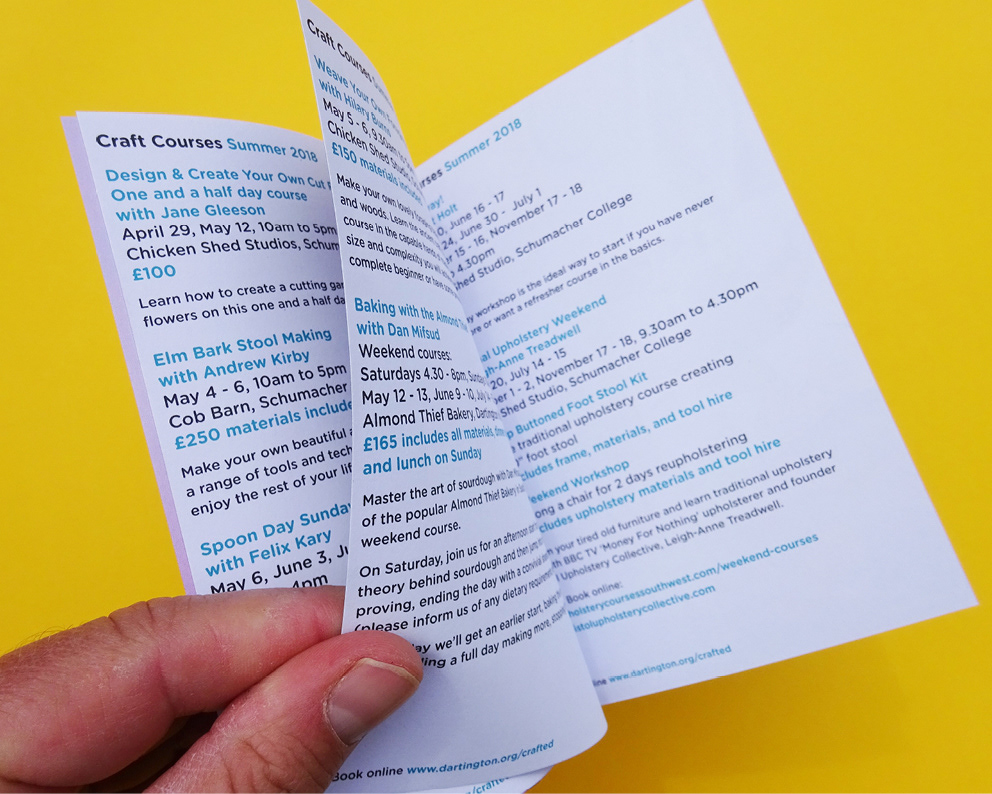 Craft Courses Summer 2018
Design & Create Your Own Cut
One and a half day course
with Jane Gleeson
April 29, May 12, 10am to 5pm
Chicken Shed Studios,
£100
Learn how to create a cutting
flowers on this one and a half
Elm Bark Stool Making
with Andrew Kirby
May 4 - 6, 10am to 5pm
Cob Barn, Schumacher
£250 materials
Make your own beautiful
a range of tools and
enjoy the rest of your
Spoon Day
with Felix Kary
May 6, June 3,
4pm
Craft Courses
Weave Your Own
with Hilary
May 5 - 6, 9.30am
Chicken Shed
£150 materials
Make your own lovely
and woods. Learn the
course in the capable hands
size and complexity you
complete beginner or have
Baking with the Almond
with Dan Mifsud
Weekend courses:
Saturdays 4.30 - 8pm,
May 12 - 13, June 9 - 10,
Almond Thief Bakery,
£165 includes all materials,
and lunch on Sunday
Master the art of sourdough with
of the popular Almond Thief Bakery
weekend course.
On Saturday, join us for an afternoon
theory behind sourdough and then
proving, ending the day with a convivial
(please inform us of any dietary
we'll get an earlier start, baking
a full day making more,
Book online www.dartington.org/crafted
Summer 2018
Holt
June 16 - 17
24, June 30 - July 1
15 - 16, November 17 - 18
4.30pm
Studio, Schumacher College
workshop is the ideal way to start if you have never
or want a refresher course in the basics.
Upholstery Weekend
Treadwell
20, July 14 - 15
1 - 2, November 17 - 18, 9.30am to 4.30pm
Shed Studio, Schumacher College
Buttoned Foot Stool Kit
traditional upholstery course creating
foot stool
frame, materials, and tool hire
Workshop
a chair for 2 days reupholstering
upholstery materials and tool hire
your tired old furniture and learn traditional upholstery
BBC TV 'Money For Nothing' upholsterer and founder
Upholstery Collective, Leigh-Anne Treadwell.
Book online:
www.dartington.org/crafted